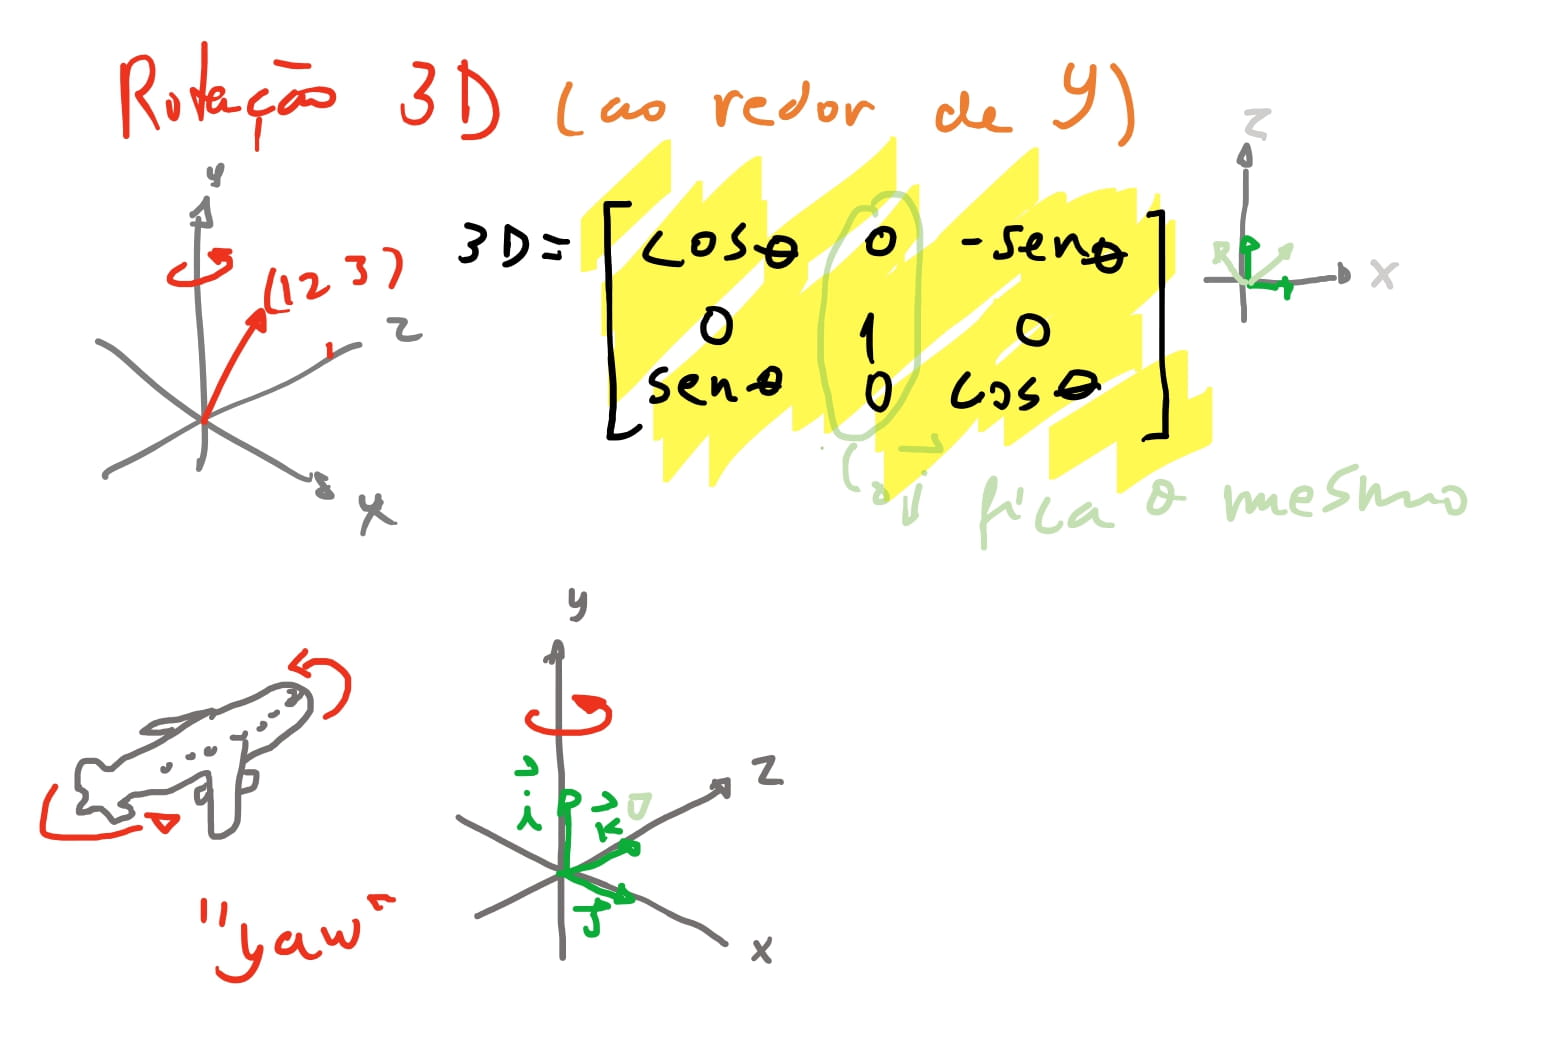 Rotação 3D (ao redor de y)
y
(1 2 3)
z
x
3D = [ cosθ 0 -senθ
0 1 0
senθ 0 cosθ ]
z
x
(o j fica o mesmo
y
z
i
k
j
x
"yaw"